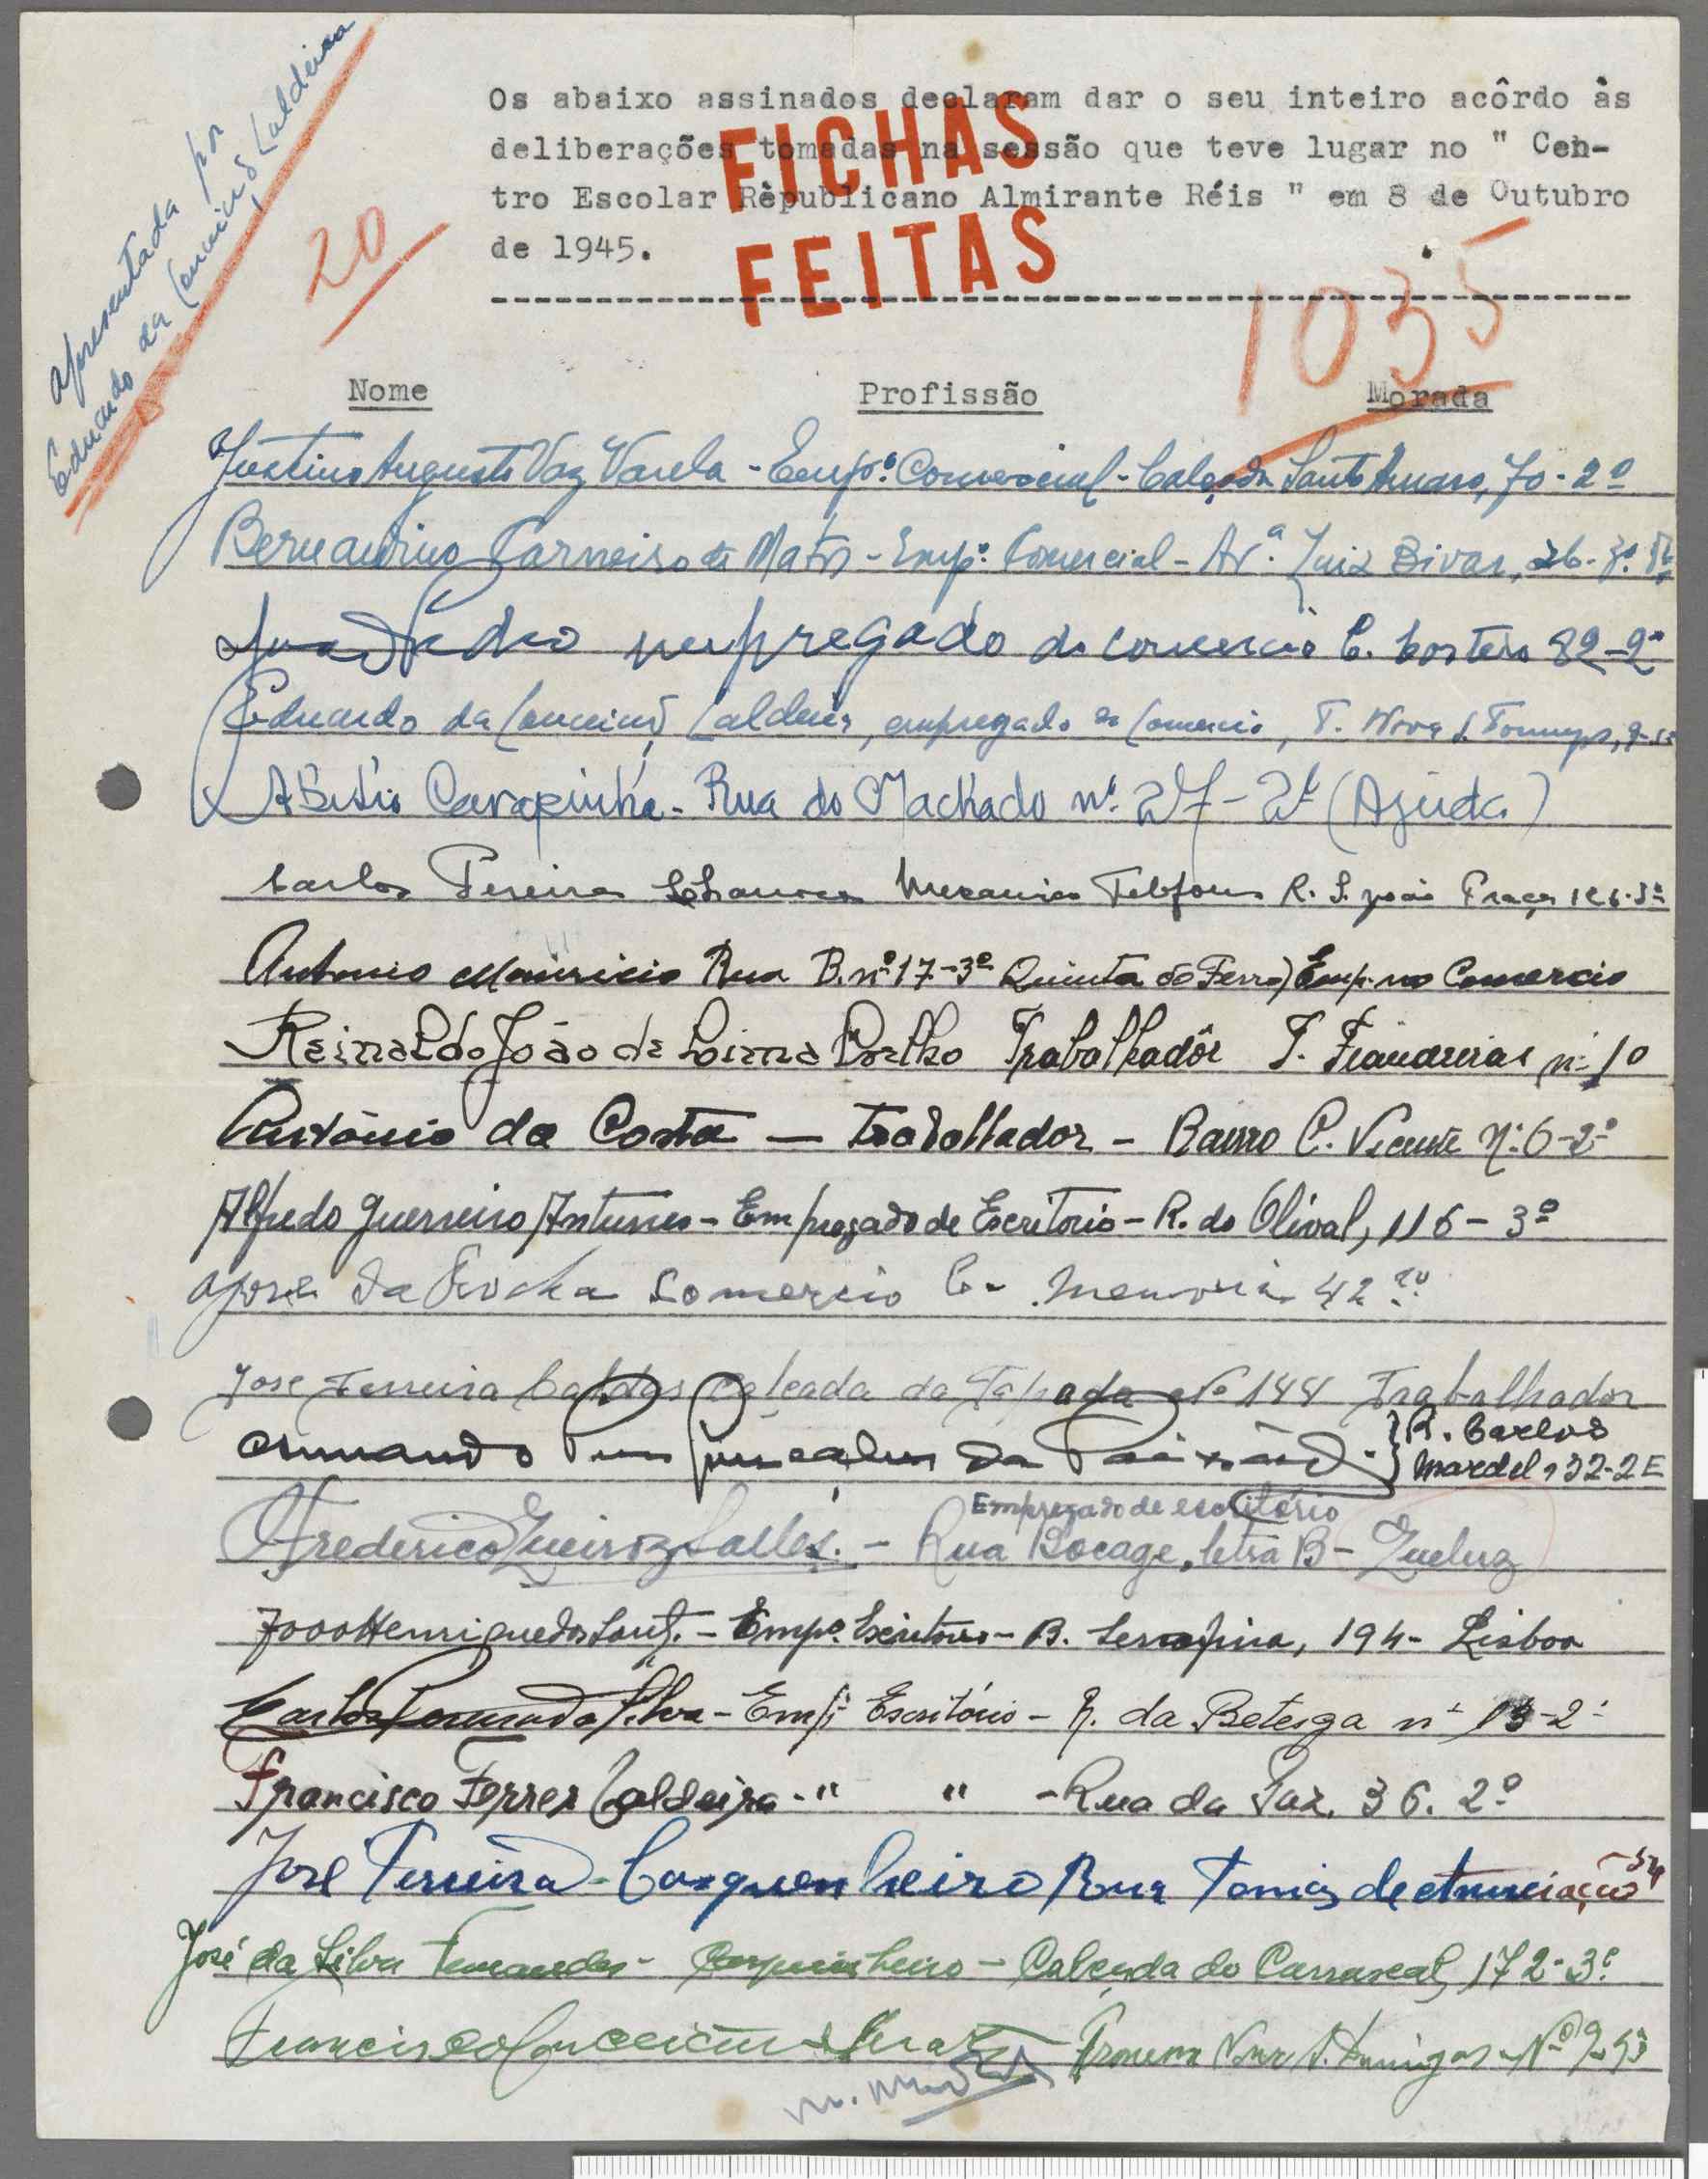 apresentada por
Eduardo da Conceição Caldeira
20
Os abaixo assinados declaram dar o seu inteiro acôrdo às
deliberações tomadas na sessão que teve lugar no " Cen-
tro Escolar Rèpublicano Almirante Réis " em 8 de Outubro
de 1945.
FICHAS
FEITAS
1035
Nome Profissão Morada
Justino Augusto Vaz Varela - Empº. Comercial - Calçada Santo Amaro, 70-2º
Bernardino Carneiro de Matos - Empº. Comercial - Avª. Luiz Bivar, 26-3º.
empregado do comercio C. 82-2º
Eduardo da Conceição Caldeira, empregado do Comercio, T. Nova S. Domingos, 9-
Abilio Carapinha - Rua do Machado nº. 27-2º (Ajuda)
Carlos Pereira Mecanico Telefones R. S. João Praça 126-3º
Antonio Mauricio Rua B. nº 17-3º Quinta do Ferro) Emp. no Comercio
Reinaldo João de Coelho Trabalhadôr T. Fiandeiras nº 10
António da Costa — trabalhador - Bairro C. Vicente Nº. 6-2º
Alfredo Guerreiro Antunes - Empregado de Escritorio - R. do Olival, 116-3º
José da Rocha Comercio C. Memoria 42
Jose Ferreira Caldas Calçada da Tapada Nº 144 Trabalhador
Armando Gonçalves da Paixão - } R. Carlos
Mardel, 132-2E
Empregado de escritório
Frederico Queiroz Salles. - Rua Bocage, letra B - Queluz
João Henrique dos Santos. - Empº. Escritorio - B. Serafina, 194 - Lisboa
Carlos da Silva - Empº Escritório - R. da Betesga nº 13-2º
Francisco Ferrer Caldeira - " " - Rua da Paz. 36. 2º
José Ferreira - Corquenheiro Rua Tomás de Anunciação
José da Silva Fernandes - Corquinheiro - Calçada do Carrascal, 172-3º.
Francisco Conceição Nº 9-